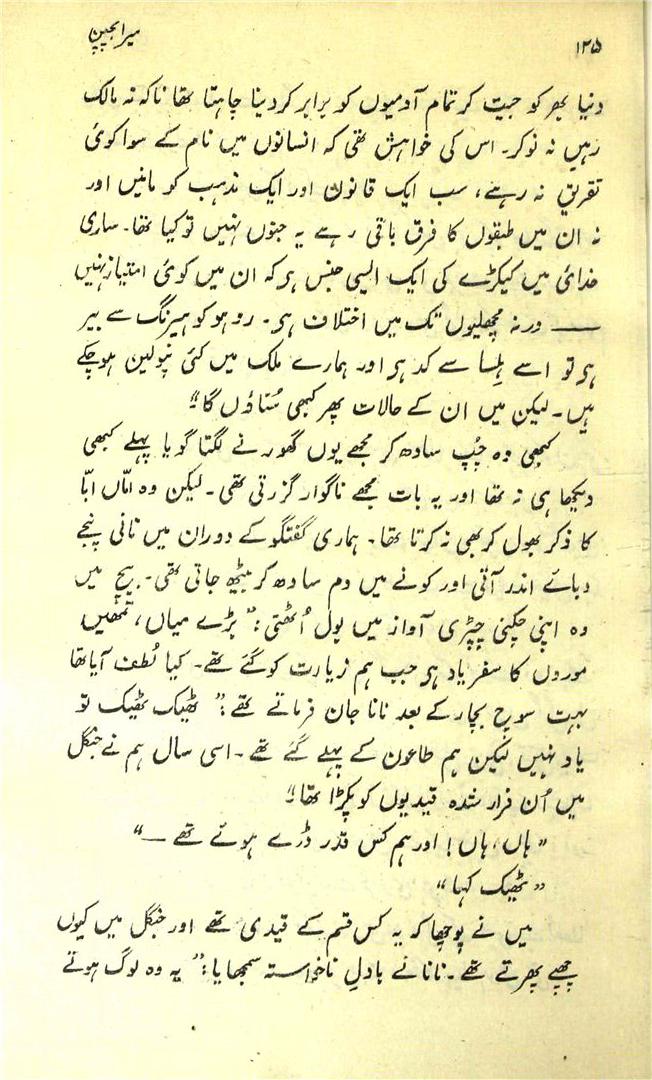 ۱۲۵
میرا بچپن
دنیا بھر کو جیت کر تمام آدمیوں کو برابر کردینا چاہتا تھا تاکہ نہ مالک
رہیں نہ نوکر۔ اس کی خواہش تھی کہ انسانوں میں نام کے سوا کوئی
تفریق نہ رہے، سب ایک قانون اور ایک مذہب کو مانیں اور
نہ ان میں طبقوں کا فرق باقی رہے یہ جنوں نہیں تو کیا تھا۔ ساری
خدائی میں کیکڑے کی ایک ایسی جنس ہر کہ ان میں کوئی امتیاز نہیں
—— ورنہ مچھلیوں تک میں اختلاف ہر۔ روہو کو ہیرنگ سے بیر
ہر تو اسے ہِلسا سے کد ہر اور ہمارے ملک میں کئی نپولین ہو چکے
ہیں۔ لیکن میں ان کے حالات پھر کبھی سُناؤں گا"
کبھی وہ چُپ سادھ کر مجھے یوں گھورنے لگتا گویا پہلے کبھی
دیکھا ہی نہ تھا اور یہ بات مجھے ناگوار گزرتی تھی۔ لیکن وہ امّاں ابّا
کا ذکر بھول کر بھی نہ کرتا تھا۔ ہماری گفتگو کے دوران میں نانی پنجے
دبائے اندر آتی اور کونے میں دم سادھ کر بیٹھ جاتی تھی۔ بیچ میں
وہ اپنی چکنی چپڑی آواز میں بول اُٹھتی: "بڑے میاں، تمھیں
موروں کا سفر یاد ہر جب ہم زیارت کو گئے تھے۔ کیا لُطف آیا تھا
بہت سوچ بچار کے بعد نانا جان فرماتے تھے: "ٹھیک ٹھیک تو
یاد نہیں لیکن ہم طاعون کے پہلے گئے تھے۔ اسی سال ہم نے جنگل
میں اُن فرار شدہ قیدیوں کو پکڑا تھا"
"ہاں، ہاں! اور ہم کس قدر ڈرے ہوئے تھے —"
"ٹھیک کہا"
میں نے پوچھا کہ یہ کس قسم کے قیدی تھے اور جنگل میں کیوں
چھپے پھرتے تھے۔ نانا نے بادلِ ناخواستہ سمجھایا: "یہ وہ لوگ ہوتے